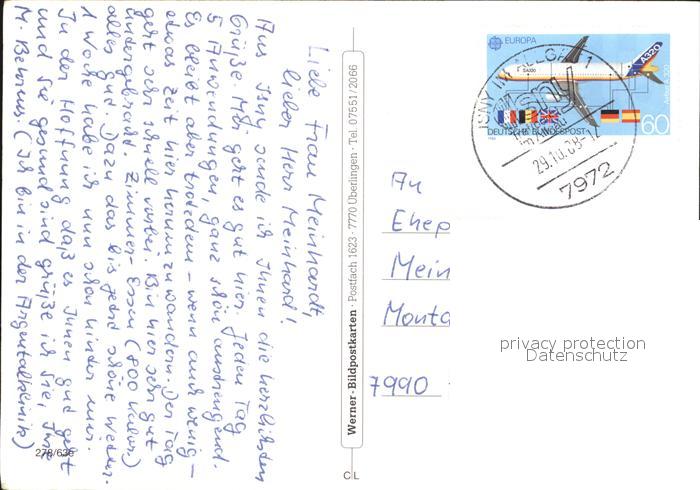 Liebe Frau Meinhardt,
lieber Herr Meinhard!
Aus Isny sende ich Ihnen die herzlichsten
Grüße. Mir geht es gut hier. Jeden Tag
5 Anwendungen, ganz schön anstrengend.
Es bleibt aber trotzdem – wenn auch wenig –
etwas Zeit hier herumzuwandern. Der Tag
geht sehr schnell vorbei. Bin hier sehr gut
untergebracht. Zimmer - Essen (800 Kalor.)
alles gut. Dazu das bis jetzt schöne Wetter.
1 Woche habe ich nun schon hinter mir.
In der Hoffnung daß es Ihnen gut geht
und Sie gesund sind grüße ich Sie, Ihre
M. Behrens. (Ich bin in der Argentalklinik)
278/636
Werner-Bildpostkarten · Postfach 1623 · 7770 Überlingen · Tel. 07551/2066
CL
EUROPA
A320
SA320
Airbus A 320
DEUTSCHE BUNDESPOST
60
ISNY IM ALLGÄU 1
isny
im Allgäu
29.10.88-17
7972
An
Ehep
Mein
Monta
7990
privacy protection
Datenschutz